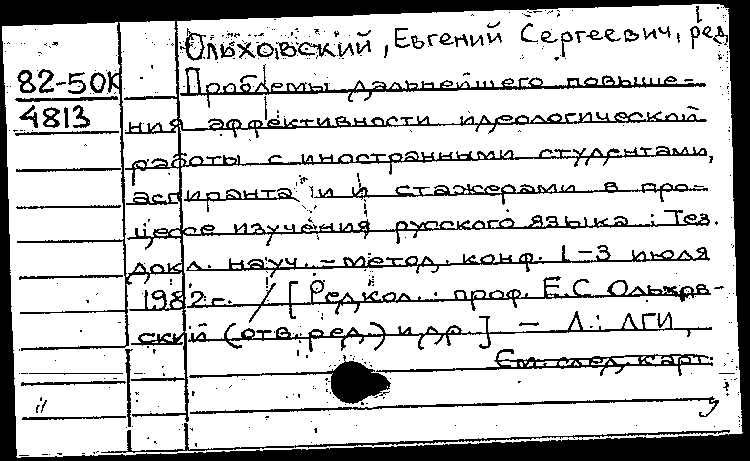 Ольховский, Евгений Сергеевич, ред
82-50К
Проблемы дальнейшего повыше-
4813
ния эффективности идеологической
работы с иностранными студентами,
аспирантами и стажерами в про-
цессе изучения русского языка : Тез.
докл. науч. - метод. конф. 1-3 июля
1982 г. / [Редкол. : проф. Е.С Ольхов-
ский (отв. ред.) и др ] - Л. : ЛГИ,
См. след. карт.